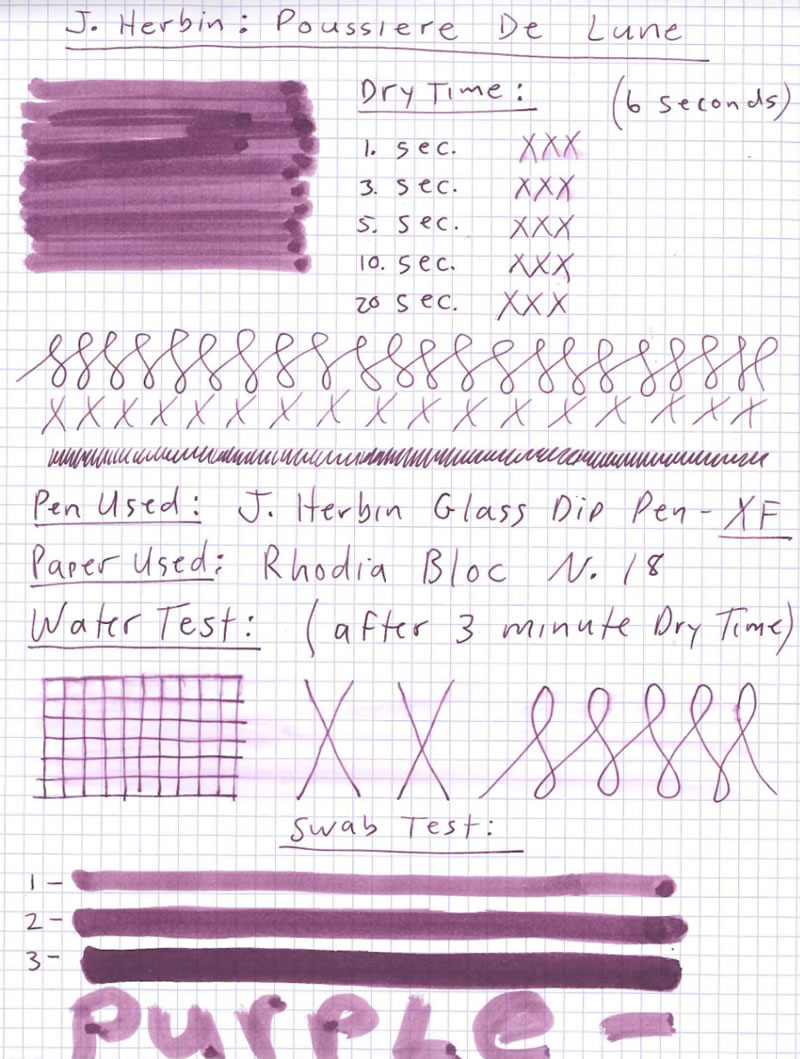 J. Herbin: Poussiere De Lune
Dry Time: (6 seconds)
1. sec. XXX
3. sec. XXX
5. sec. XXX
10. sec. XXX
20 sec. XXX
X X X X X X X X X X X X X X X X
Pen Used: J. Herbin Glass Dip Pen - XF
Paper Used: Rhodia Bloc N. 18
Water Test: (after 3 minute Dry Time)
X X
Swab Test:
1 -
2 -
3 -
PURPLE -